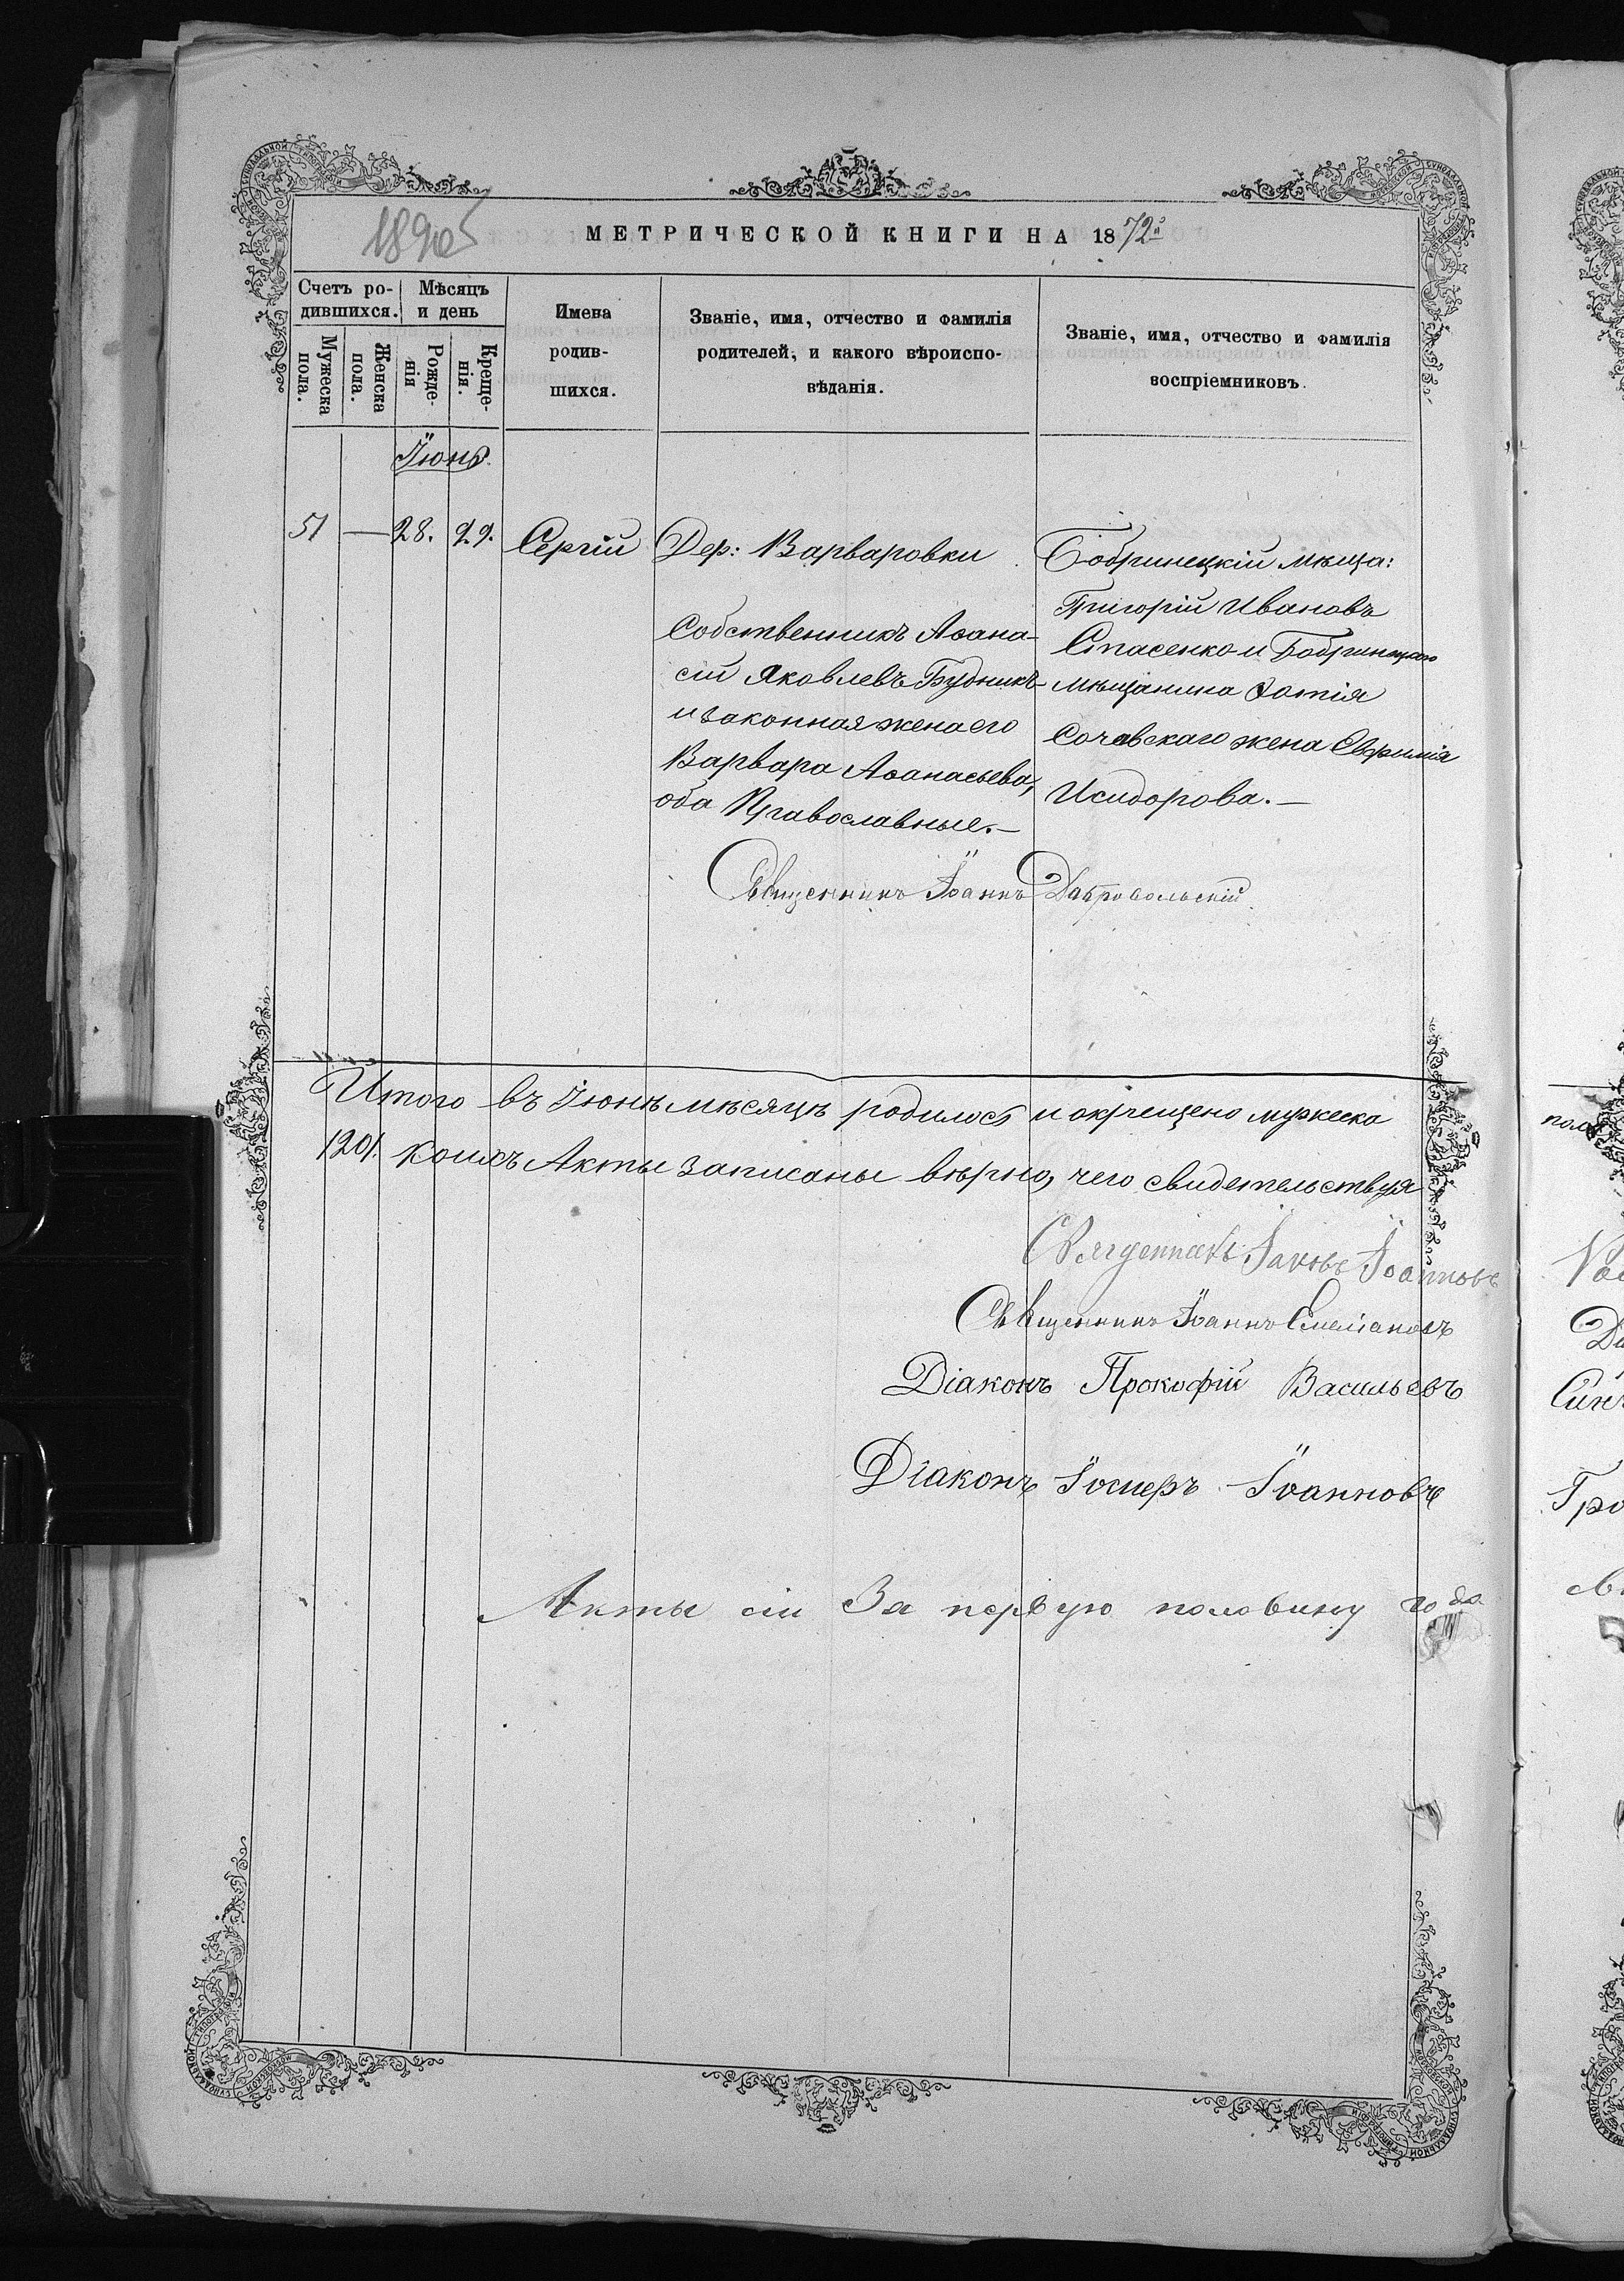 189об
МЕТРИЧЕСКОЙ КНИГИ НА 1872й
Счетъ ро-
дившихся.
Мѣсяцъ
и день
Мужеска
пола.
Женска
пола.
Рожде-
нія
Креще-
нія.
Имена
родив-
шихся.
Званіе, имя, отчество и фамилія
родителей, и какого вѣроиспо-
вѣданія.
Званіе, имя, отчество и фамилія
воспріемниковъ.
Іюнь
51 — 28. 29. Сергій
Дер: Варваровки
Собственникъ Аѳана-
сій Яковлевъ Будникъ
и законная жена его
Варвара Аѳанасьева,
оба Православные.—
Бобринецкій мѣща:
Григорій Ивановъ
Спасенко и Бобринецкаго
мѣщанина Фотія
Сочавскаго жена Евфимія
Исидорова.—
Священникъ Іоаннъ Добровольскій
Итого въ Іюнѣ мѣсяцѣ родилось и окрещено мужеска
коихъ Акты записаны вѣрно, чего свидетельствуя
Священникъ Іаковъ Іоанновъ
Священникъ Іоаннъ Емеліановъ
Діаконъ Прокофій Васильевъ
Діаконъ Іосифъ Іоанновъ
Акты сіи За первую половину года
пола